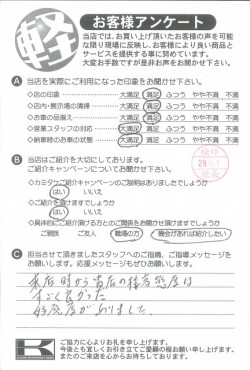 軽
お客様アンケート
当店では、お買い上げ頂いたお客様の声を可能
な限り現場に反映し、お客様により良い商品と
サービスを提供する事に努めています。
大変お手数ですが是非お声をお聞かせ下さい。
A 当店を実際にご利用になった印象をお聞かせ下さい。
◇店の印象 大満足 満足 ふつう やや不満 不満
◇店内・展示場の清掃 大満足 満足 ふつう やや不満 不満
◇お車の品揃え 大満足 満足 ふつう やや不満 不満
◇営業スタッフの対応 大満足 満足 ふつう やや不満 不満
◇納車時のお車の状態 大満足 満足 ふつう やや不満 不満
B 当店はご紹介を大切にしております。
ご紹介キャンペーンについてお聞かせ下さい。
◇カミタケご紹介キャンペーンのご説明はありましたでしょうか
はい いいえ
◇ご紹介を頂けますでしょうか
はい いいえ
◇具体的にご紹介頂ける方とのご関係をお聞かせ頂けますでしょうか
ご親族 ご友人 職場の方 機会があれば紹介したい
社長
C 担当させて頂きましたスタッフへのご指摘、ご指導メッセージを
お願いします。応援メッセージもぜひお願いします。
来店時から貴店の接客態度は
すごく良かった
好感度がありました
K
ご協力に心よりお礼を申し上げます。
今後とも宜しくお引き立てご愛顧の程お願い申し上げます。
またのご来店を心からお待ちしております。